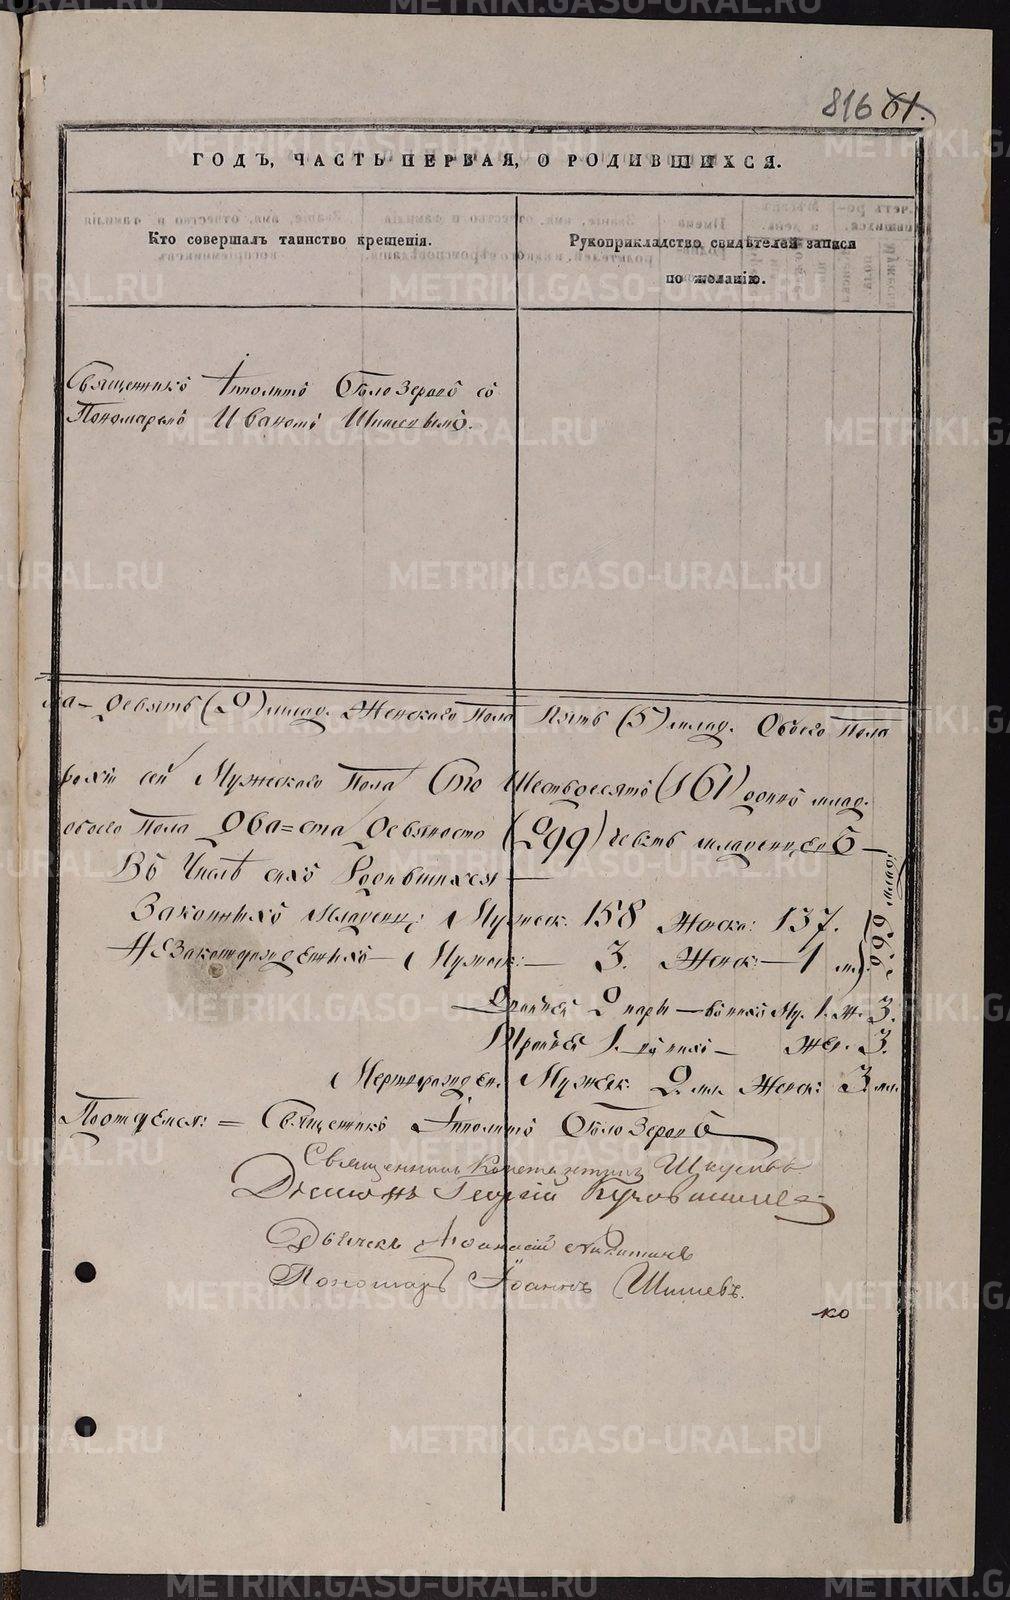 816 61.
ГОДЪ, ЧАСТЬ ПЕРВАЯ, О РОДИВШИХСЯ.
Кто совершалъ таинство крещенія.
Рукоприкладство свидѣтелей записи
по желанію.
Священникъ Ипполитъ Бѣлозеровъ съ
Пономаремъ Иваномъ Шишевымъ.
на – Девять (9) млад. Женскаго Пола Пять (5) млад. Обоего Пола
сей Мужескаго Пола Сто Шестьдесятъ (161) одинъ млад.
обоего Пола Двѣ=ста Девяносто (299) девять младенцевъ –
Въ Числѣ сихъ Родившихся –
Законныхъ Младенц: Мужеск: 158 Женск: 137.
Незаконнорожденныхъ – Мужеск: – 3. Женск: – 1 мл.
299 млад:
– Двойней 2 пары – въ нихъ Му. 1. Ж. 3.
Тройней 1. въ нихъ – Же. 3.
Мертворожден. Мужек: 2. мл. Женск: 3 мл.
Священникъ Ипполитъ Бѣлозеровъ
Священникъ Константинъ
Діаконъ Георгій
Дьячекъ Афанасій Никитинъ
Пономарь Іоаннъ Шишевъ.
ко
METRIKI.GASO-URAL.RU